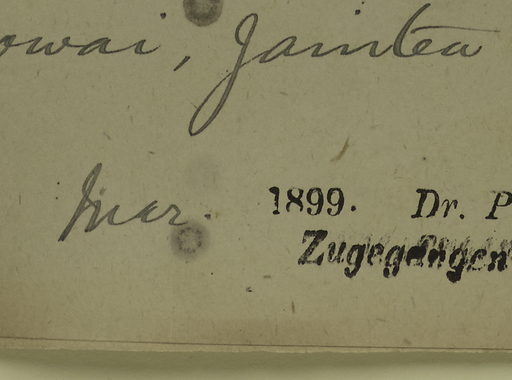 owai, Jaintea
Mar. 1899. Dr. P
Zugegangen